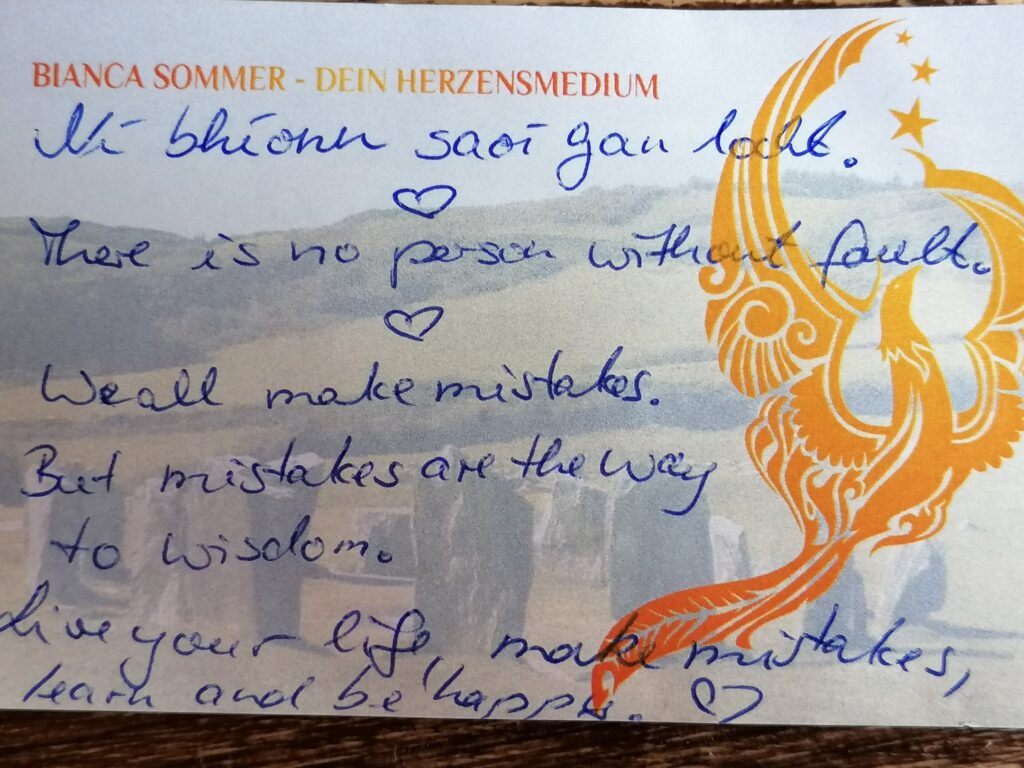 BIANCA SOMMER - DEIN HERZENSMEDIUM
Ní bhíonn saoi gan locht.
There is no person without fault.
We all make mistakes.
But mistakes are the way
to wisdom.
Live your life, make mistakes,
learn and be happy.